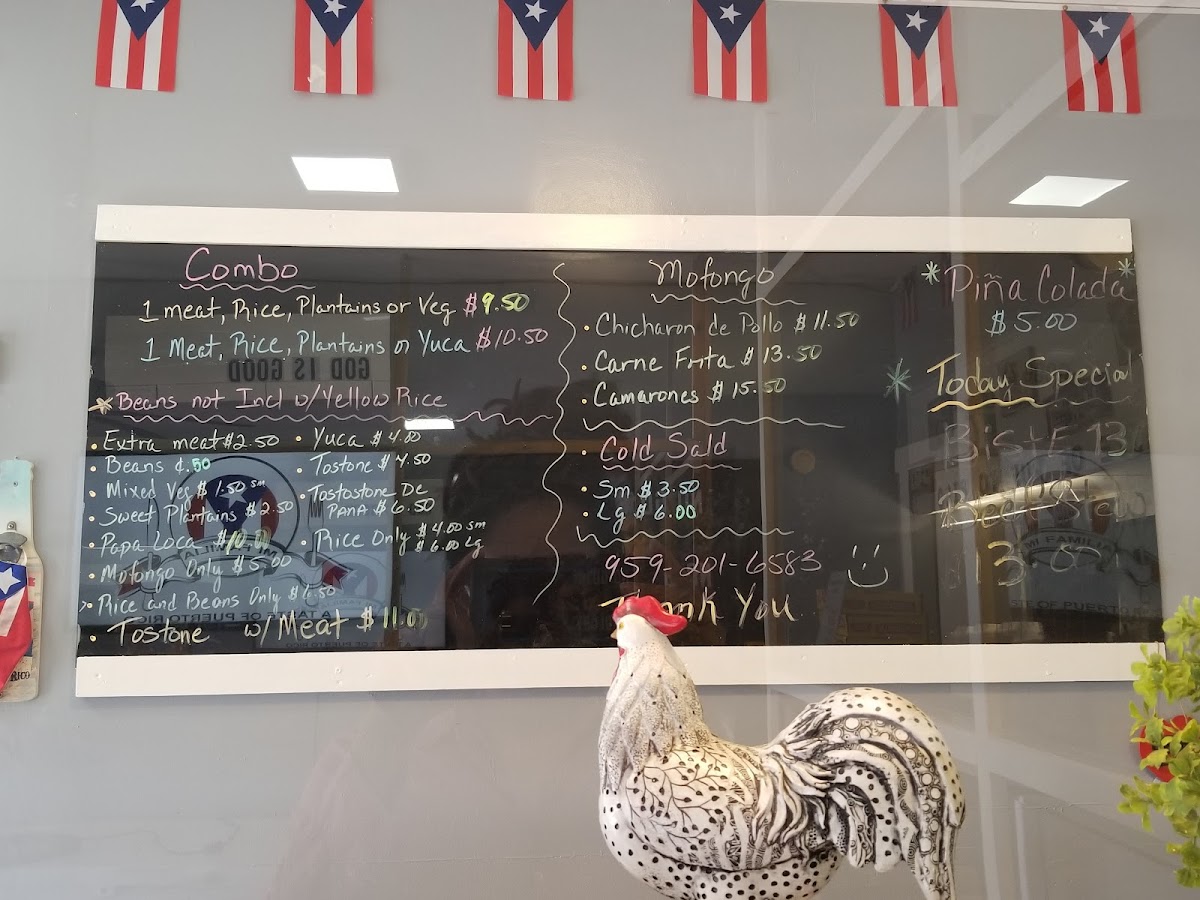 Combo
1 meat, Rice, Plantains or Veg $9.50
1 Meat, Rice, Plantains or Yuca $10.50
GOD IS GOOD
Beans not Incl w/Yellow Rice
Extra meat $2.50
Beans ¢.50
Mixed Veg $1.50 sm
Sweet Plantains $2.50
Papa Loca $10.00
Mofongo Only $5.00
Rice and Beans Only $6.50
Tostone w/Meat $11.00
Yuca $4.00
Tostone $4.50
Tostostone De
PANA $6.50
Rice Only $4.00 sm
$6.00 Lg
Mofongo
Chicharon de Pollo $11.50
Carne Frita $13.50
Camarones $15.50
Cold Sald
Sm $3.50
Lg $6.00
959-201-6583
Thank You
Piña Colada
$5.00
Today Special
13
Beef Stew
13.00
MI FAMILIA
RICO